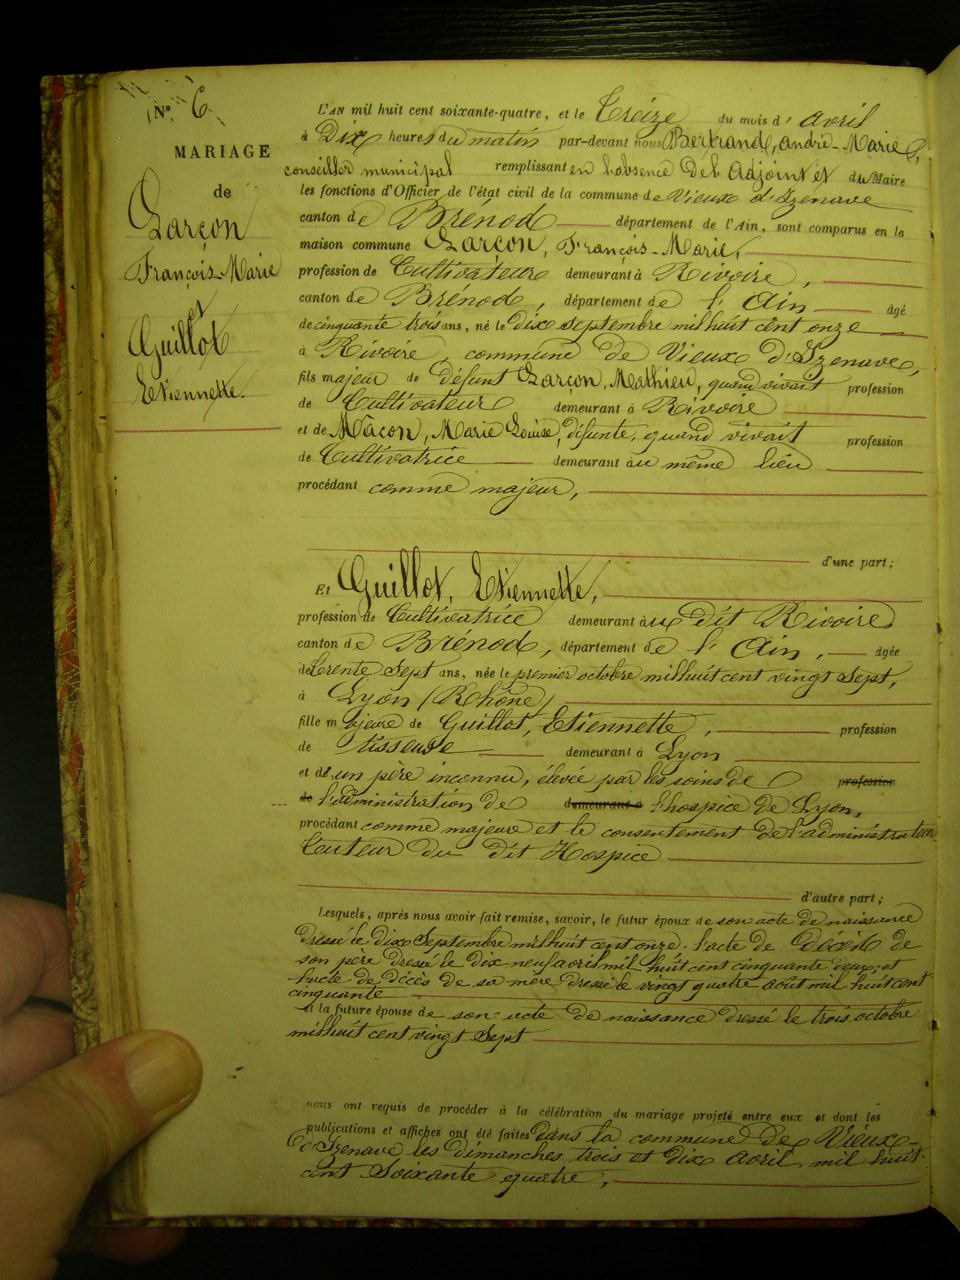 N° 6
MARIAGE
de
Garçon
François-Marie
et
Guillot
Etiennette.
L'AN mil huit cent soixante-quatre, et le Treize du mois d'avril
à Dix heures du matin par-devant nous Bertrand, andré-Marie,
conseiller municipal remplissant en l'absence de l'adjoint et du Maire
les fonctions d'Officier de l'état civil de la commune de Vieux d'Izenave
canton de Brénod département de l'Ain, sont comparus en la
maison commune Garçon, François-Marie,
profession de Cultivateur demeurant à Rivoire,
canton de Brénod, département de l'Ain, âgé
de cinquante trois ans, né le dix septembre mil huit cent onze
à Rivoire, commune de Vieux d'Izenave,
fils majeur de défunt Garçon, Mathieu, quand vivait profession
de Cultivateur demeurant à Rivoire
et de Mâcon, Marie Louise, défunte, quand vivait profession
de Cultivatrice demeurant au même lieu
procédant comme majeur,
d'une part;
Et Guillot, Etiennette,
profession de Cultivatrice demeurant aux dit Rivoire
canton de Brénod, département de l'Ain, âgée
de trente sept ans, née le premier octobre mil huit cent vingt sept,
à Lyon (Rhône)
fille majeure de Guillot, Etiennette, profession
de tisseuse demeurant à Lyon
et d'un père inconnu, élevée par les soins de profession
de l'administration de demeurant à l'hospice de Lyon,
procédant comme majeure et le consentement de l'administrateur
tuteur du dit Hospice
d'autre part;
Lesquels, après nous avoir fait remise, savoir, le futur époux de son acte de naissance
dressé le dix Septembre mil huit cent onze. l'acte de décès de
son père dressé le dix neuf avril mil huit cent cinquante deux; et
l'acte de décès de sa mère dressé le vingt quatre août mil huit cent
cinquante
et la future épouse de son acte de naissance dressé le trois octobre
mil huit cent vingt sept
nous ont requis de procéder à la célébration du mariage projeté entre eux et dont les
publications et affiches ont été faites dans la commune de Vieux-
d'Izenave les dimanches trois et dix avril, mil huit-
cent soixante quatre,